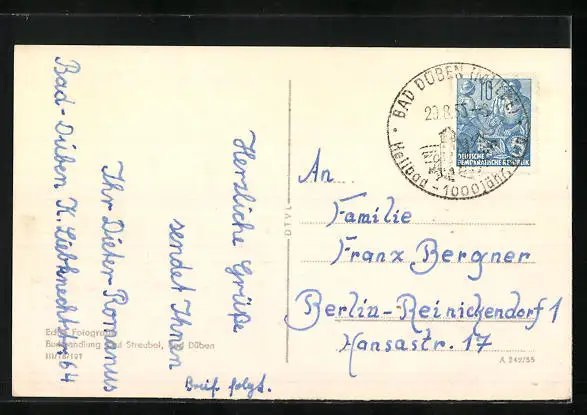 Herzliche Grüße
sendet Ihnen
Ihr Dieter Romanus
Bad-Düben K. Liebknechtstr. 64
Brief folgt.
Echte Fotografie
Buchhandlung Paul Streubel, Bad Düben
III/18/197
BAD DÜBEN
20.8.5
Heilbad - 1000jähr.
10
DEUTSCHE
DEMOKRATISCHE REPUBLIK
An
Familie
Franz Bergner
Berlin-Reinickendorf 1
Hansastr. 17
A 249/55